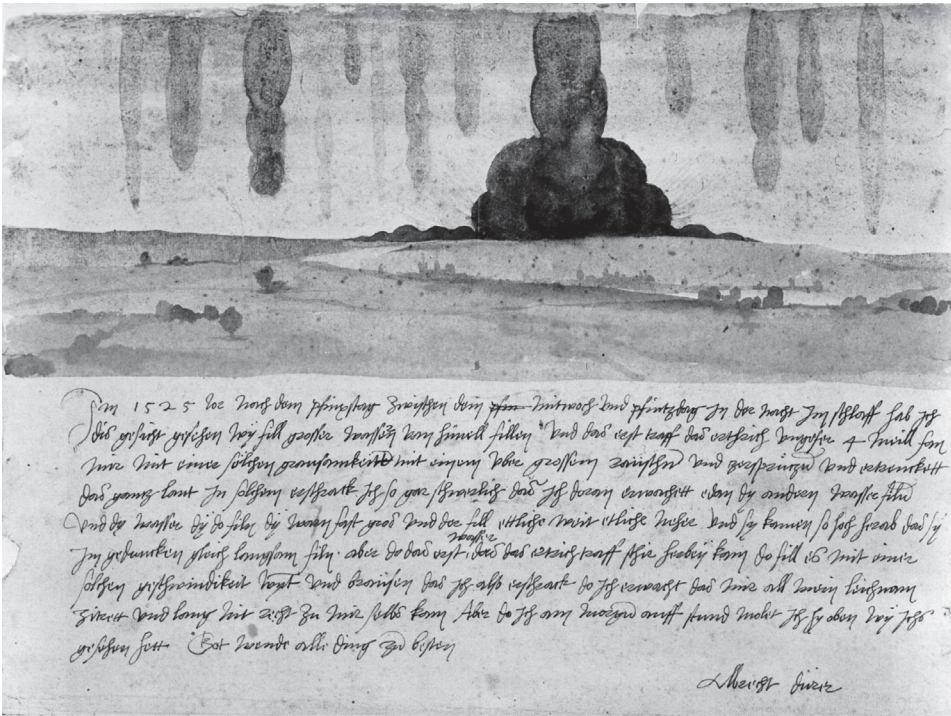 Im 1525 Jor nach dem pfinxstag zwischen dem pfin mitwoch und pfintzdag in der nacht im schlaff hab ich
dis gesicht gesehen wy fill grosser wassern vom himell fillen Und das erst traff das erthrich ungefer 4 meill fan
mir mit einer sölchen grausamkeitt mit einem uber grossem raüschn und zersprützn und ertrenckett
das gantz lant In sölchem erschrack ich so gar schwerlich das ich doran erwachett edan dy andern wasser filn
Und dy wasser dy do filn dy warn fast gros und der fill ettliche weit etliche neher und sy kamen so hoch herab das sy
im gedancken gleich langsam filn. aber do das erst wasser das das ertrich traff schir herbey kam do fill es mit einer
sölchen geschwindikeit wynt und braüsen das ich also erschrack do ich erwacht das mir all mein leichnam
zitrett und lang nit recht zu mir selbs kam Aber do ich am morgn auff stund molet ich hy oben wy ichs
gesehen hett Got wende alle ding zu besten
Albrecht dürer